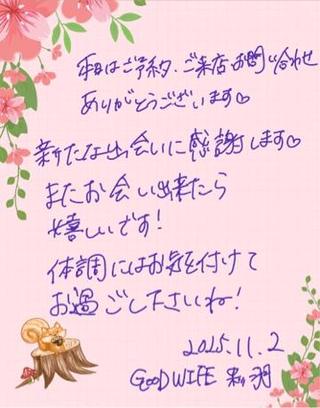 本日はご予約、ご来店、お問い合わせ
ありがとうございます♡
新たな出会いに感謝します♡
またお会い出来たら
嬉しいです!
体調にはお気を付けて
お過ごし下さいね!
2025.11.2
GOOD WIFE